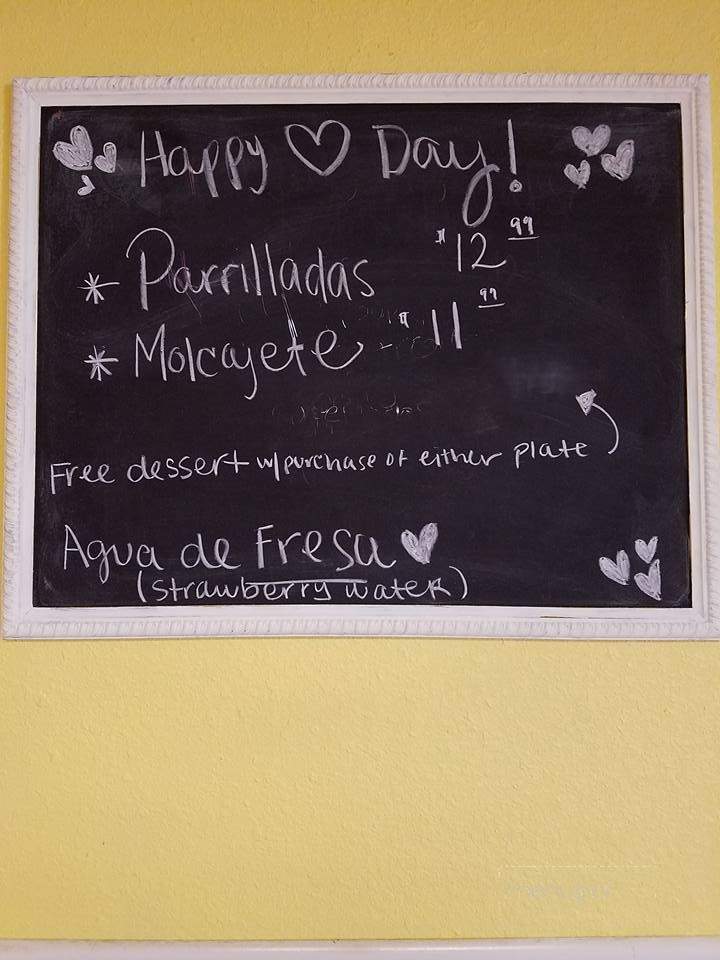 Happy ♡ Day!
* Parrilladas $12.99
* Molcajete $11.99
Free dessert w/purchase of either plate
Agua de Fresa
(strawberry water)